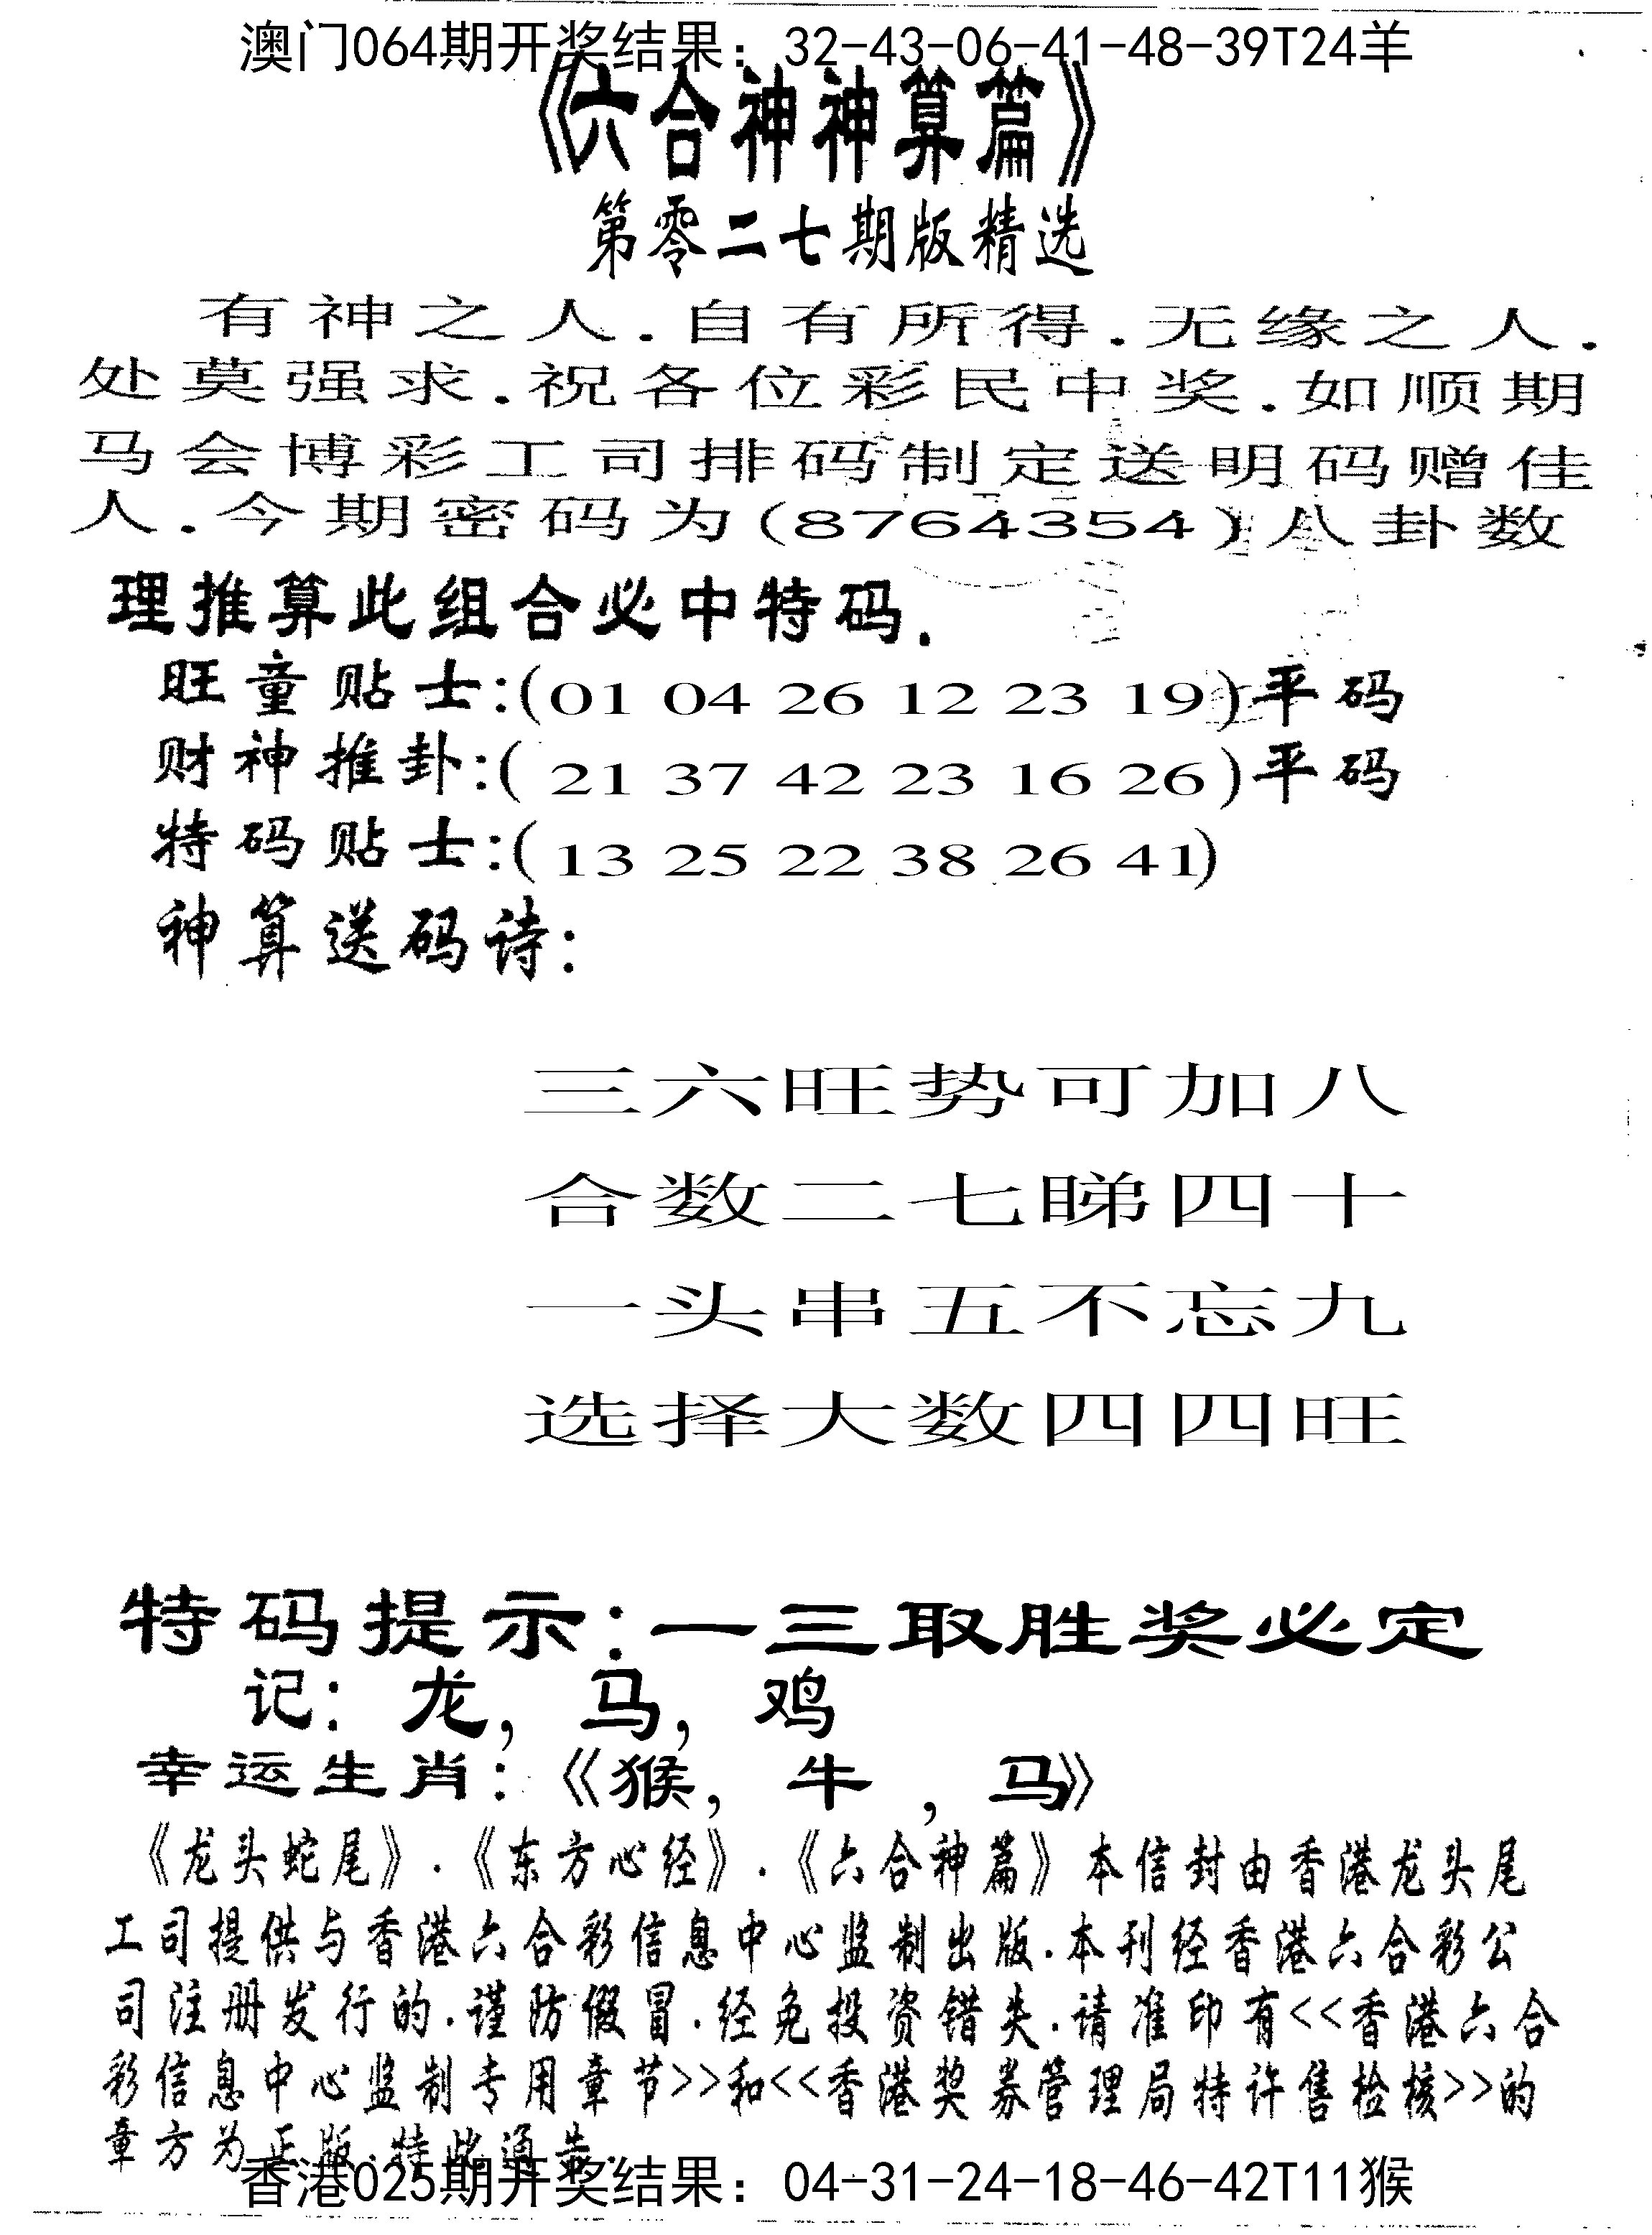 澳门064期开奖结果：32-43-06-41-48-39T24羊
《六合神神算篇》
第零二七期版精选
有神之人.自有所得.无缘之人.
处莫强求.祝各位彩民中奖.如顺期
马会博彩工司排码制定送明码赠佳
人.今期密码为(8764354)八卦数
理推算此组合必中特码.
旺童贴士:(01 04 26 12 23 19)平码
财神推卦:( 21 37 42 23 16 26)平码
特码贴士:(13 25 22 38 26 41)
神算送码诗:
三六旺势可加八
合数二七睇四十
一头串五不忘九
选择大数四四旺
特码提示:一三取胜奖必定
记:龙,马,鸡
幸运生肖:《猴,牛,马》
《龙头蛇尾》.《东方心经》.《六合神篇》本信封由香港龙头尾
工司提供与香港六合彩信息中心监制出版.本刊经香港六合彩公
司注册发行的.谨防假冒.经免投资错失.请准印有<<香港六合
彩信息中心监制专用章节>>和<<香港奖券管理局特许售检核>>的
章方为正版.特此通告.
香港025期开奖结果：04-31-24-18-46-42T11猴